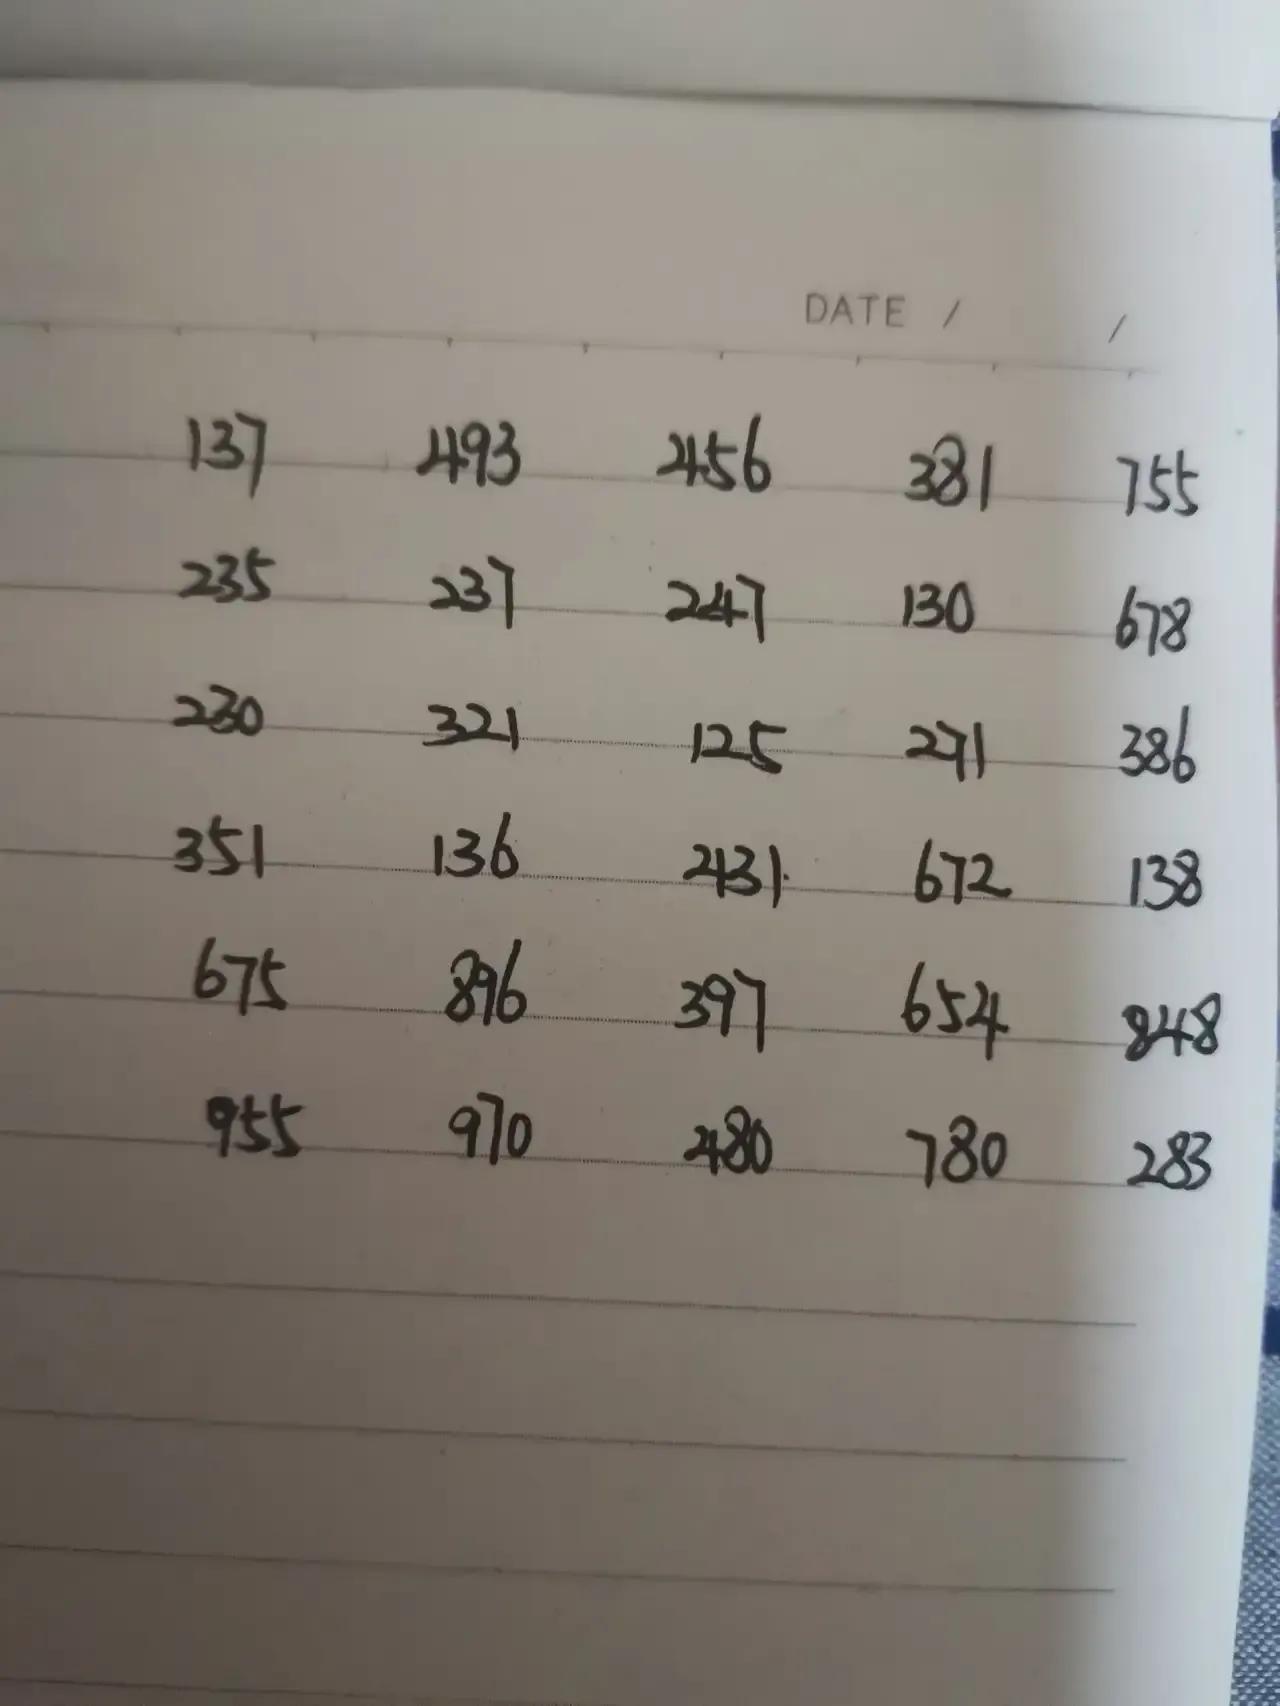 DATE / /
137 493 456 381 755
235 237 247 130 678
230 321 125 271 386
351 136 431 672 138
675 896 397 654 848
955 970 480 780 283